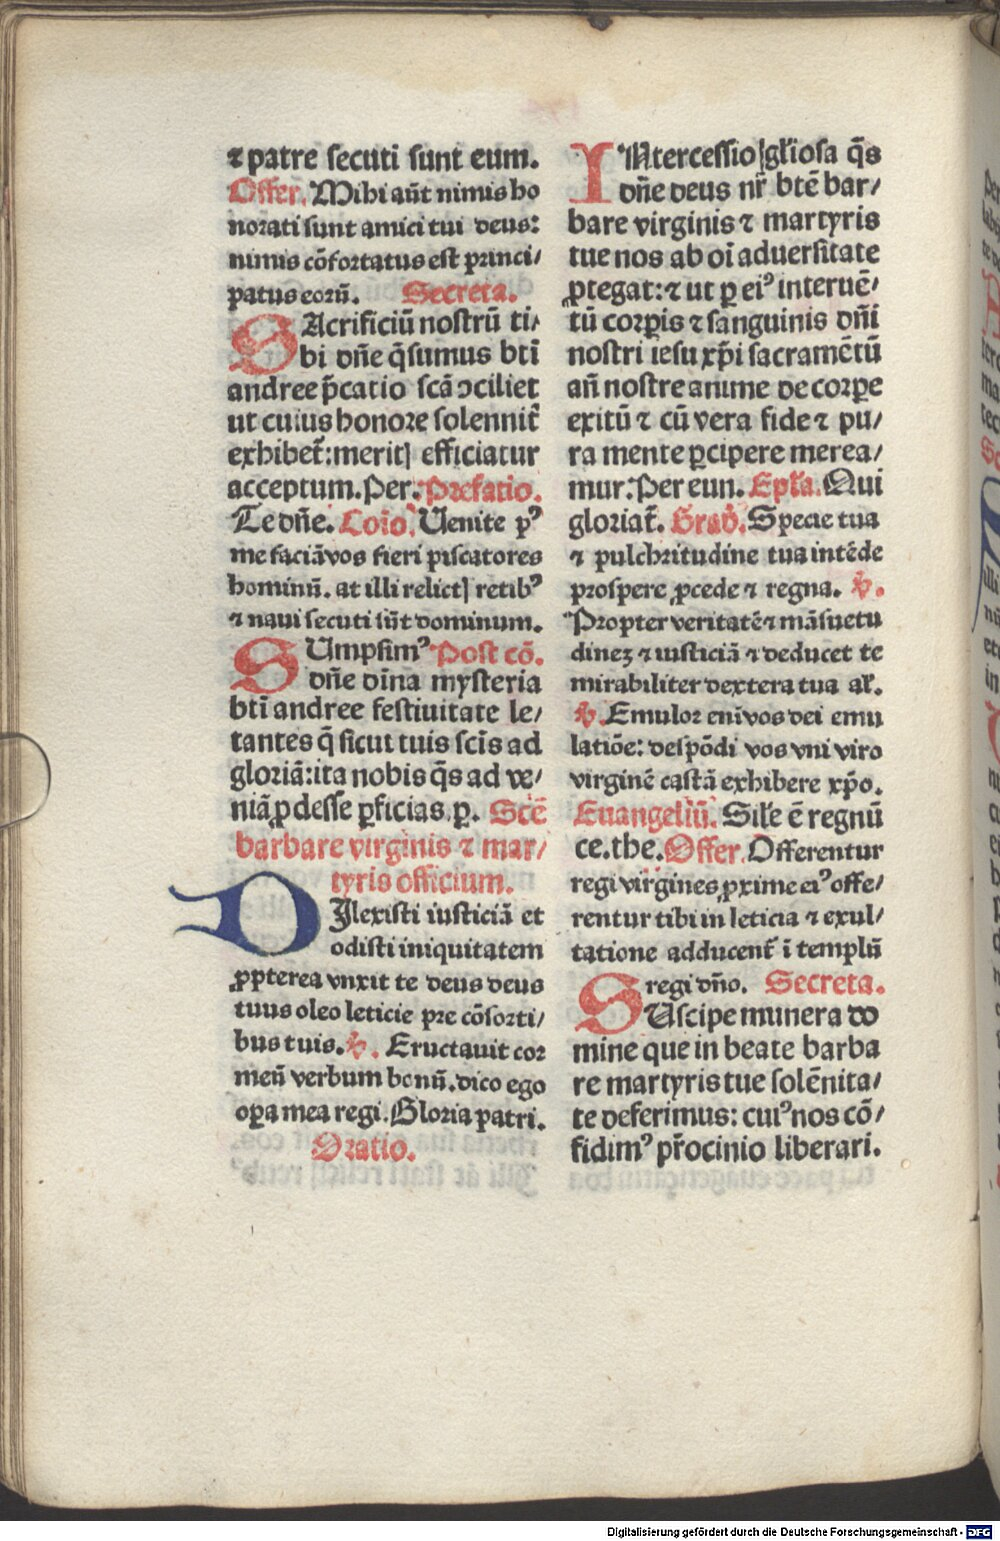 ⁊ patre secuti sunt eum.
Offer. Mihi aūt nimis ho
norati sunt amici tui deus:
nimis cōfortatus est princi/
patus eorū. Secreta.
SAcrificiū nostrū ti/
bi dn̄e q̄sumus bt̄i
andree p̄catio scā ꝯciliet
ut cuius honore solennit̄
exhibet̄: meritꝭ efficiatur
acceptum. Per. Prefatio.
Te dn̄e. Cōio. Uenite pꝰ
me faciā vos fieri piscatores
hominū. at illi relictꝭ retibꝰ
⁊ naui secuti sūt dominum.
SUmpsimꝰ Post cō.
dn̄e diīna mysteria
bt̄i andree festiuitate le/
tantes q̄ sicut tuis scīs ad
gloriā: ita nobis q̄s ad ve/
niā ꝓdesse ꝑficias. ꝑ. Scē
barbare virginis ⁊ mar/
tyris officium.
DJlexisti iusticiā et
odisti iniquitatem
ꝓpterea vnxit te deus deus
tuus oleo leticie pre cōsorti/
bus tuis. ℣. Eructauit cor
meū verbum bonū. dico ego
oꝑa mea regi. Gloria patri.
Oratio.
INtercessio gl̄iosa q̄s
dn̄e deus nr̄ btē bar/
bare virginis ⁊ martyris
tue nos ab oī aduersitate
ꝓtegat: ⁊ ut ꝑ eiꝰ interuē/
tū corꝑis ⁊ sanguinis dn̄i
nostri iesu xp̄i sacramētū
an̄ nostre anime de corꝑe
exitū ⁊ cū vera fide ⁊ pu/
ra mente ꝑcipere merea/
mur: Per eun. Epl̄a. Qui
gloriat̄. Grad̄. Specie tua
⁊ pulchritudine tua intēde
prospere ꝓcede ⁊ regna. ℣.
Propter veritatē ⁊ māsuetu
dinez ⁊ iusticiā ⁊ deducet te
mirabiliter dextera tua al̄.
℣. Emulor eniꝫ vos dei emu
latiōe: despōdi vos vni viro
virginē castā exhibere xp̄o.
Euangeliū. Sil̄e ē regnū
ce. the. Offer. Offerentur
regi virgines ꝓxime eiꝰ offe/
rentur tibi in leticia ⁊ exul/
tatione adducent̄ ī templū
regi dn̄o. Secreta.
SUscipe munera do
mine que in beate barba
re martyris tue solēnita/
te deferimus: cuiꝰ nos cō/
fidimꝰ pr̄ocinio liberari.
Digitalisierung gefördert durch die Deutsche Forschungsgemeinschaft - DFG